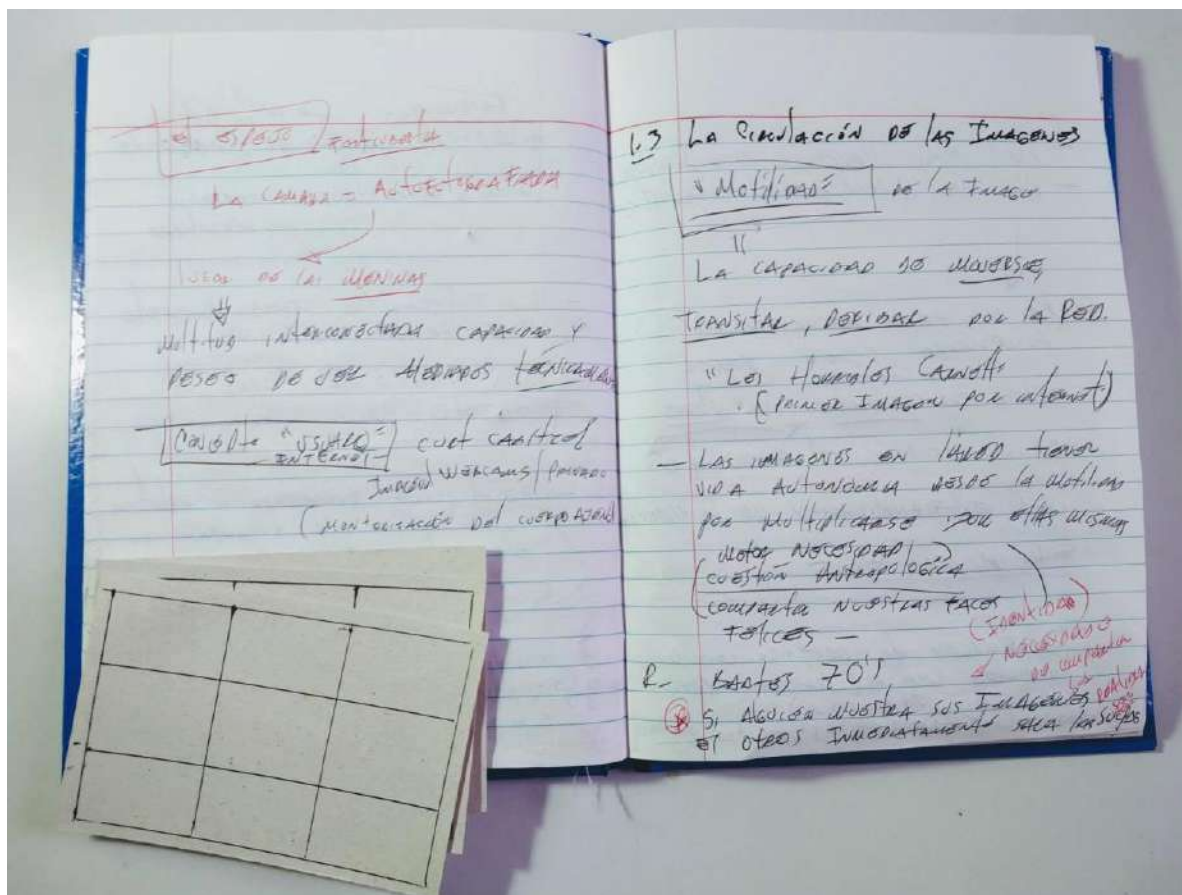 el espejo
La camara = Autofotografiada
Juego de las Meninas
Multitud interconectada capacidad y
deseo de ser mediados técnicamente
"Usuario"
INTERNET
Imagen Webcams / Privado
(Monitorización del cuerpo ajeno)
1.3 La Circulación de las Imagenes
"Motilidad" de la Imagen
"
La capacidad de moverse,
transitar, derivar por la RED.
"Les Horribles Cernettes"
(primer Imagen por internet)
— Las imagenes en la red tienen
vida autonoma desde la motilidad
por multiplicarse por ellas mismas
Motor necesidad
cuestión Antropologica
compartir nuestras faces
felices —
(Identidad)
Necesidad
de compartir
la realidad
R. Bartes 70's
Si alguien muestra sus Imagenes
el otros inmediatamente saca las suyas